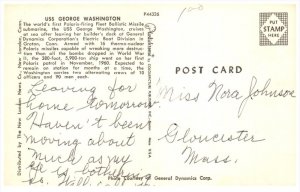 USS GEORGE WASHINGTON
P44336
The world's first Polaris-firing Fleet Ballistic Missile
submarine, the USS George Washington, cruises
at sea after leaving her builder's dock at General
Dynamics Corporation's Electric Boat Division in
Groton, Conn. Armed with 16 thermo-nuclear
Polaris missiles capable of more destructive power
than all the bombs dropped in World War II,
the 380-foot, 5,900-ton ship went on her first
Polaris patrol in November, 1960. Expected to
remain on station for months at a time, the
Washington carries two alternating crews of 10
officers and 90 men each.
Leaving for
home tomorrow.
Haven't been
moving about
much as my
is
Photo Courtesy of General Dynamics Corp.
Distributed by The New
PLACE
STAMP
HERE
POST CARD
Miss Nora Johnson
Gloucester
Mass.